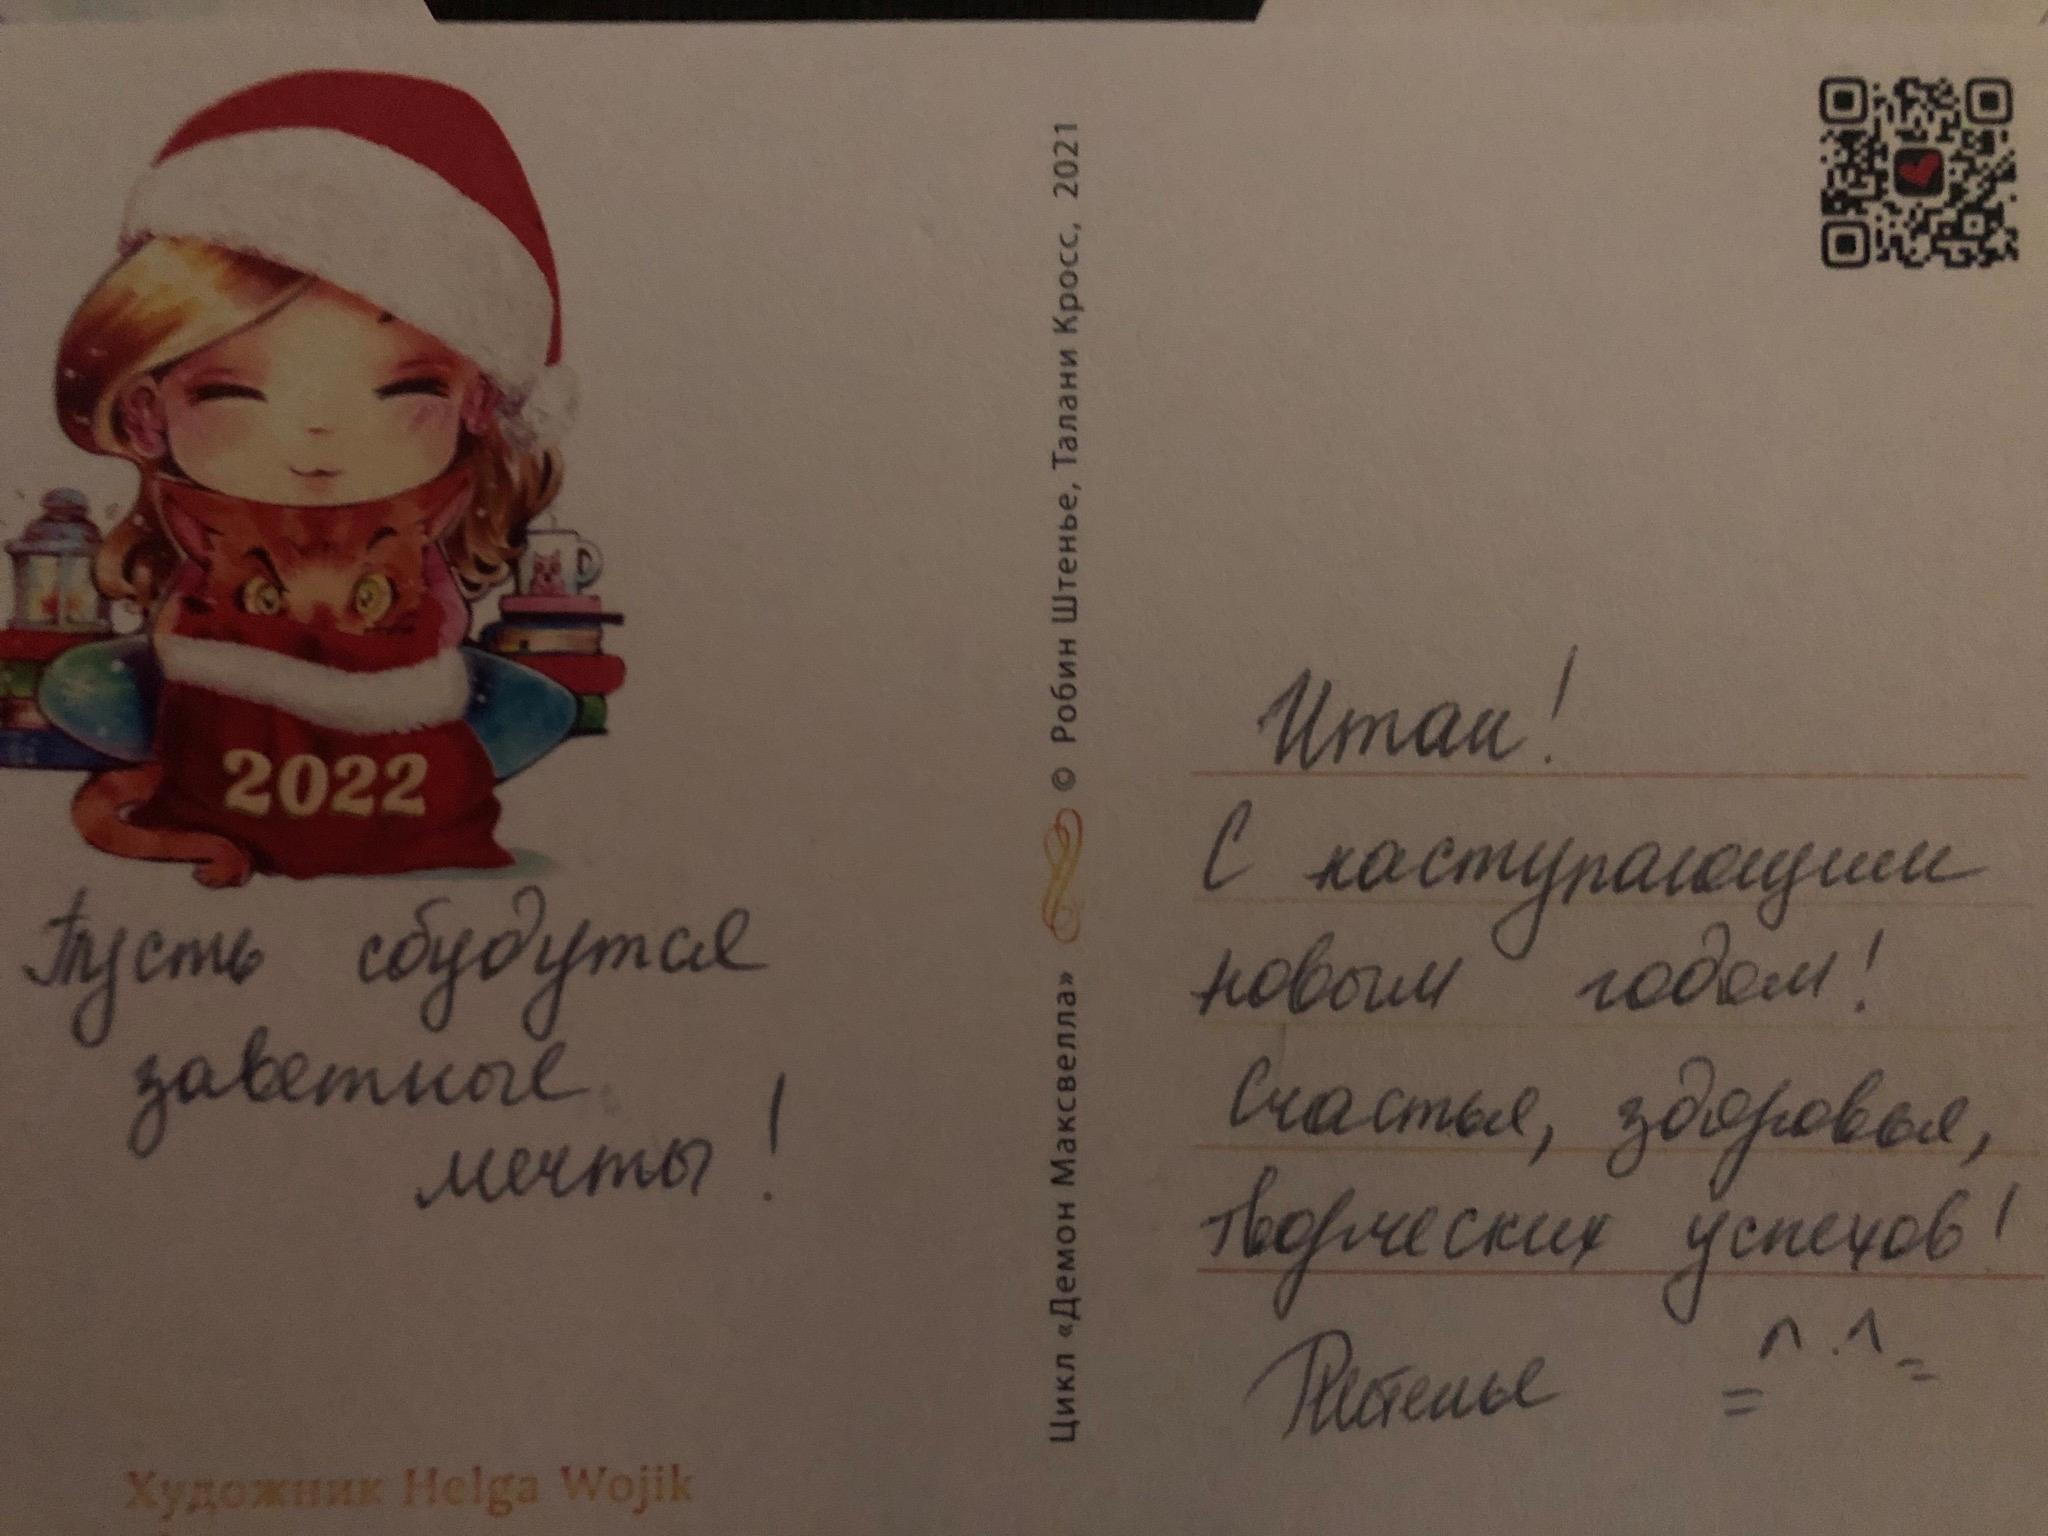 2022
Пусть сбудутся
заветные
мечты!
Художник Helga Wojik
Цикл «Демон Максвелла» © Робин Штенье, Талани Кросс, 2021
Итаи!
С наступающим
новым годом!
Счастья, здоровья,
творческих успехов!
=^.^=